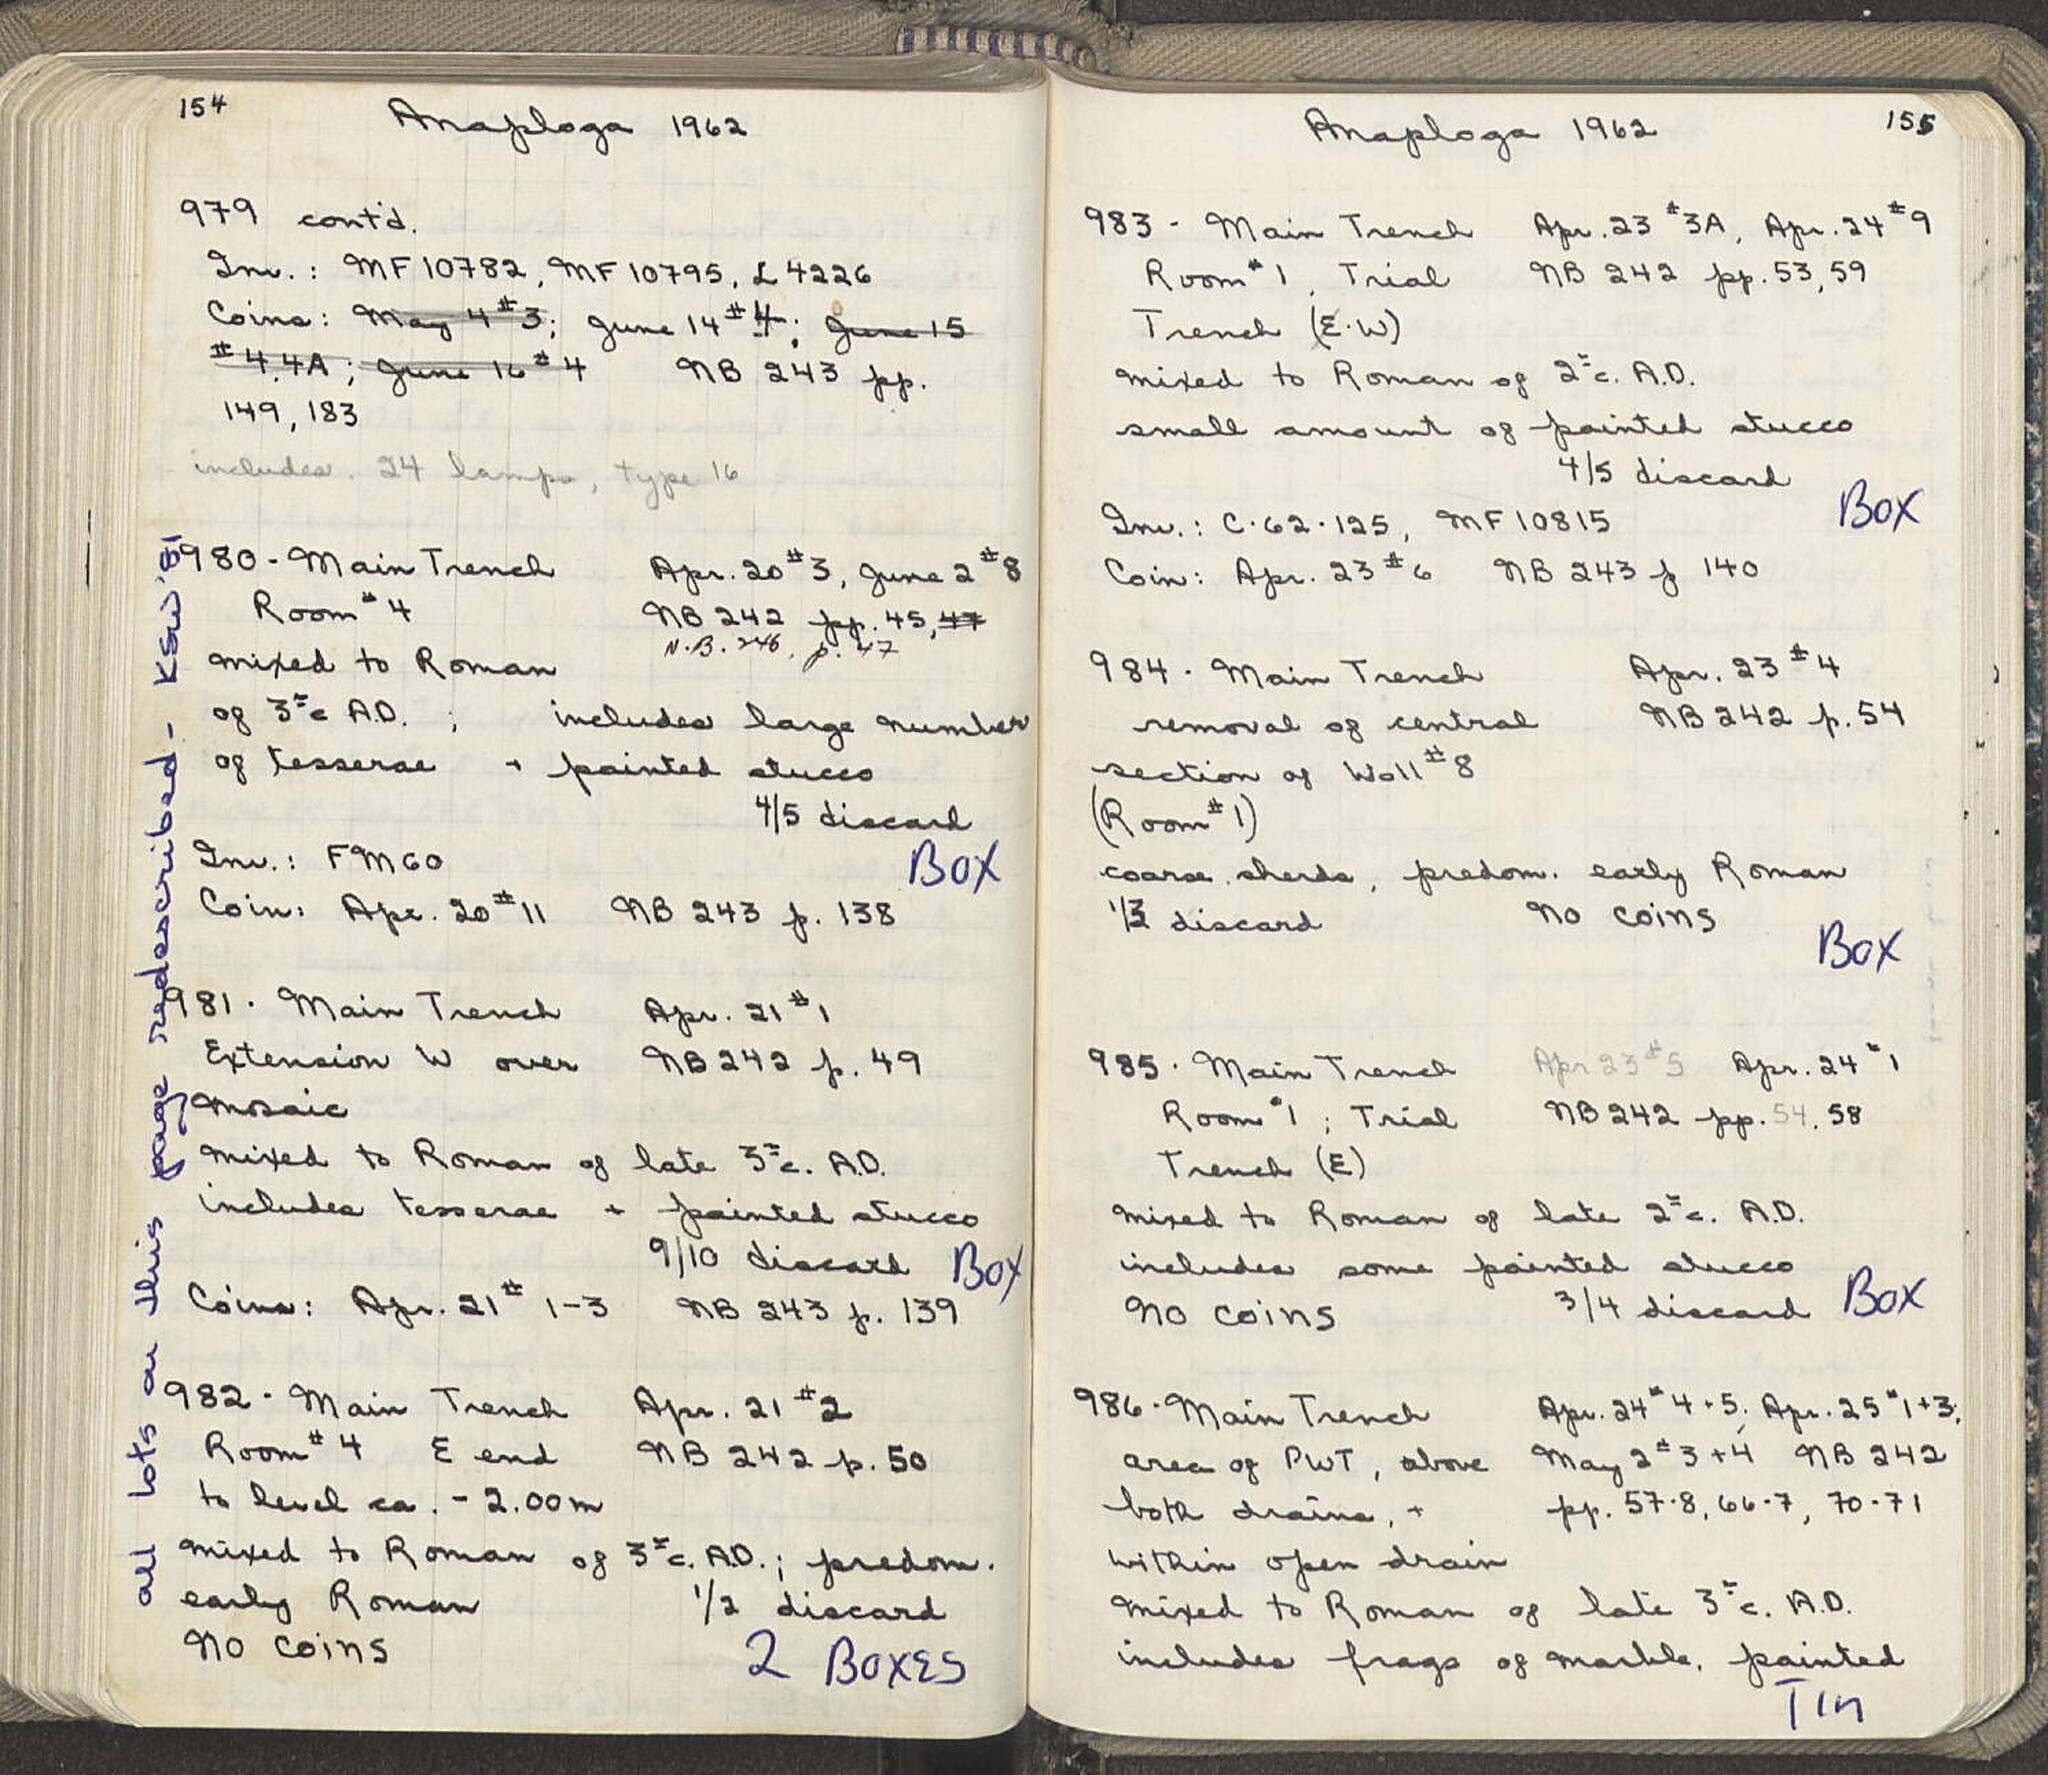 154
Anaploga 1962
979 cont'd.
Inv.: MF 10782, MF 10795, L 4226
Coins: May 4 #3; June 14 #4; June 15
#4.4A; June 16 #4 NB 243 pp.
149, 183
includes. 24 lamps, type 16
980 - Main Trench Apr. 20 #3, June 2 #8
Room #4 NB 242 pp. 45, 47
N.B. 246, p. 47
mixed to Roman
of 3rd c A.D. ; includes large number
of tesserae + painted stucco
4/5 discard
Inv.: FM60 BOX
Coin: Apr. 20 #11 NB 243 p. 138
981. Main Trench Apr. 21 #1
Extension W over NB 242 p. 49
mosaic
mixed to Roman of late 3rd c. A.D.
includes tesserae + painted stucco
9/10 discard BOX
Coins: Apr. 21 # 1-3 NB 243 p. 139
982 - Main Trench Apr. 21 #2
Room #4 E end NB 242 p. 50
to level ca. - 2.00m
mixed to Roman of 3rd c. A.D.; predom.
early Roman 1/2 discard
No coins 2 BOXES
all lots on this page redescribed - KSW '81
Anaploga 1962
155
983 - Main Trench Apr. 23 #3A, Apr. 24 #9
Room #1, Trial NB 242 pp. 53, 59
Trench (E-W)
mixed to Roman of 2nd c. A.D.
small amount of painted stucco
4/5 discard
Inv.: C-62-125, MF 10815 BOX
Coin: Apr. 23 #6 NB 243 p 140
984 - Main Trench Apr. 23 #4
removal of central NB 242 p. 54
section of Wall #8
(Room #1)
coarse sherds, predom. early Roman
discard No coins
BOX
985. Main Trench Apr 23 #5 Apr. 24 #1
Room #1; Trial NB 242 pp. 54, 58
Trench (E)
mixed to Roman of late 2nd c. A.D.
includes some painted stucco
No coins 3/4 discard BOX
986 - Main Trench Apr. 24 #4+5; Apr. 25 #1+3;
area of PWT, above May 2 #3+4 NB 242
both drains, + pp. 57-8, 66-7, 70-71
within open drain
mixed to Roman of late 3rd c. A.D.
includes frags of marble, painted
TIN